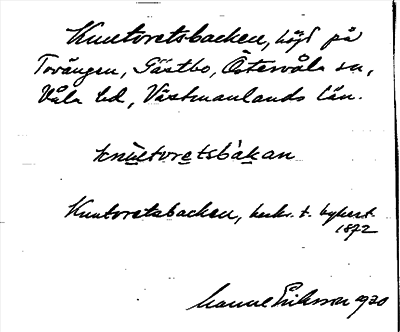 Knutoretsbacken, höjd på
Torängen, Gästbo, Östervåla sn,
Våla hd, Västmanlands län.
knutoretsbakan
Knutoretsbacken, beskr. t. bykart
1872
Manne Eriksson 1930